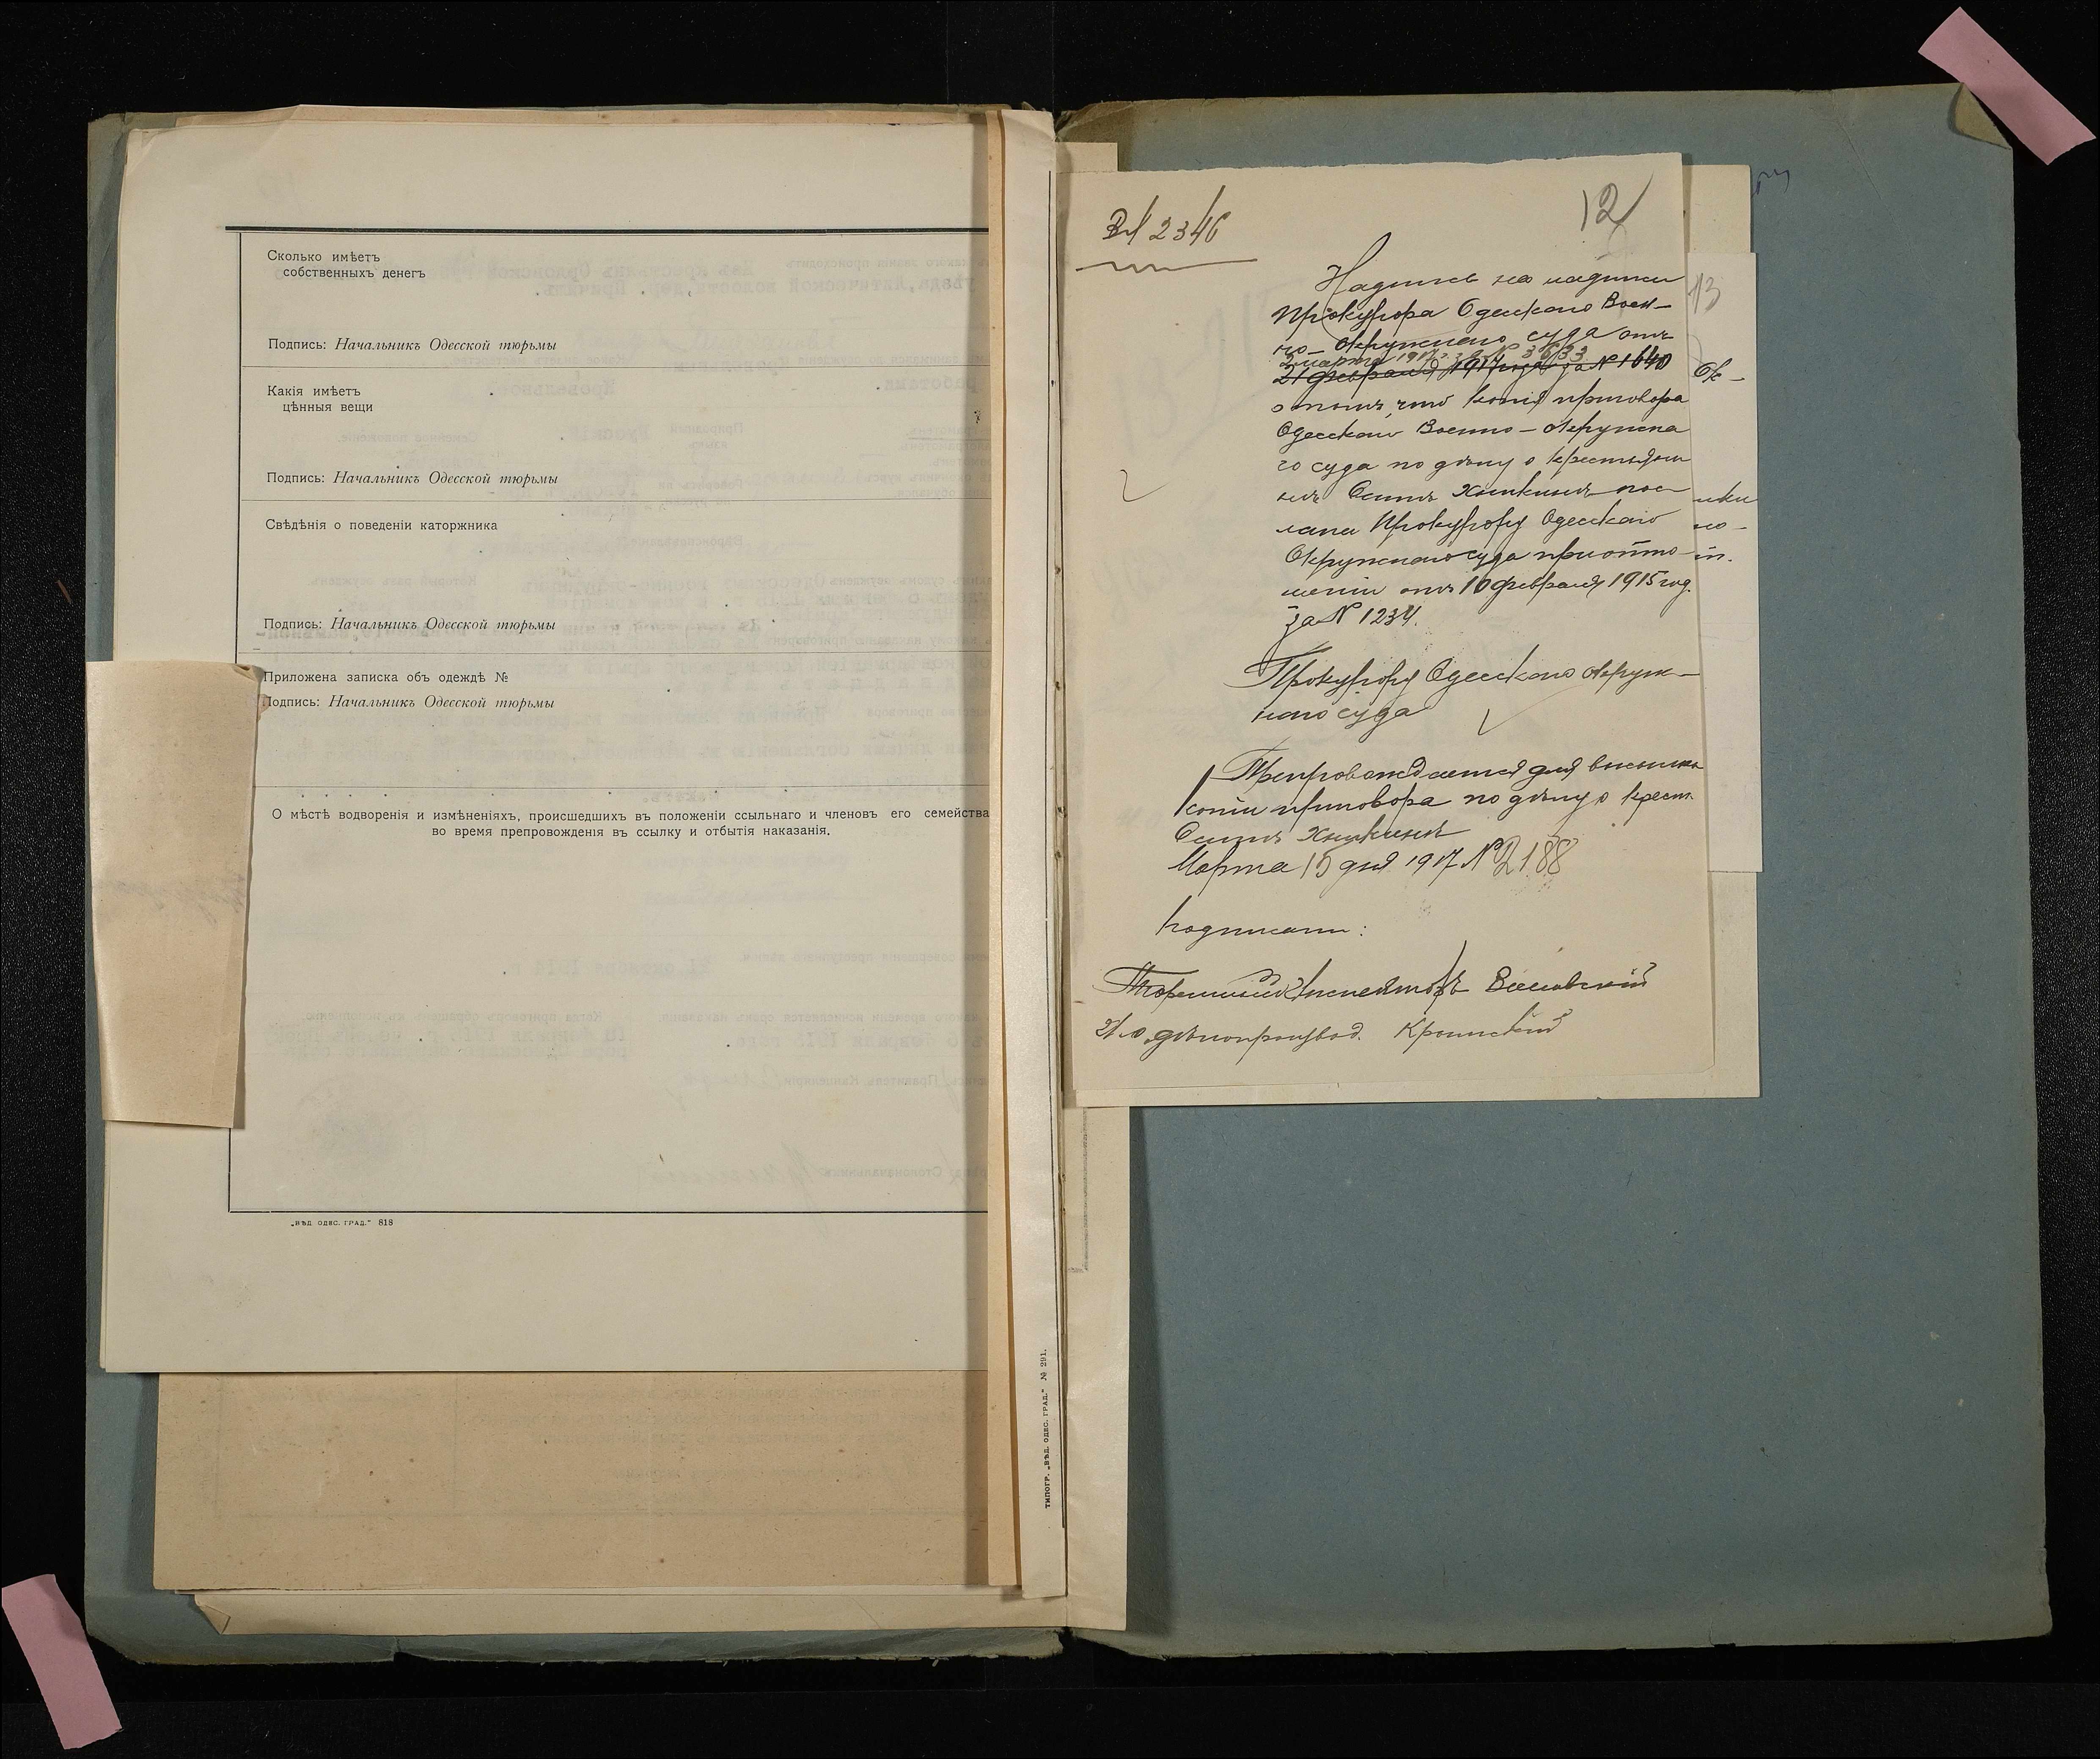 Сколько имѣетъ
собственныхъ денегъ
Подпись: Начальникъ Одесской тюрьмы
Какія имѣетъ
цѣнныя вещи
Подпись: Начальникъ Одесской тюрьмы
Свѣдѣнія о поведеніи каторжника
Подпись: Начальникъ Одесской тюрьмы
Приложена записка объ одеждѣ №
Подпись: Начальникъ Одесской тюрьмы
О мѣстѣ водворенія и измѣненіяхъ, происшедшихъ въ положеніи ссыльнаго и членовъ его семейства
во время препровожденія въ ссылку и отбытія наказанія.
„ВѢД. ОДЕС. ГРАД.“ 818
ТИПОГР. „ВѢД. ОДЕС. ГРАД.“ № 291.
2346
12
Надпись на надписи
Прокурора Одесскаго Воен-
но-Окружнаго суда отъ
2 марта 1917 г. за № 3633
21 февраля 1917 года за № 1640
о томъ, что копія приговора
Одесскаго Военно-Окружна
го суда по дѣлу о крестьян
инѣ пос
лана Прокурору Одесскаго
Окружнаго суда при отно-
шеніи отъ 10 февраля 1915 год.
за № 1234.
Прокурору Одесскаго Окруж-
наго суда
Препровождается для высылки
копіи приговора по дѣлу о крест.
Марта 15 дня 1917 № 2188
Подписали:
Тюремный Инспекторъ
И. о. дѣлопроизвод.
13